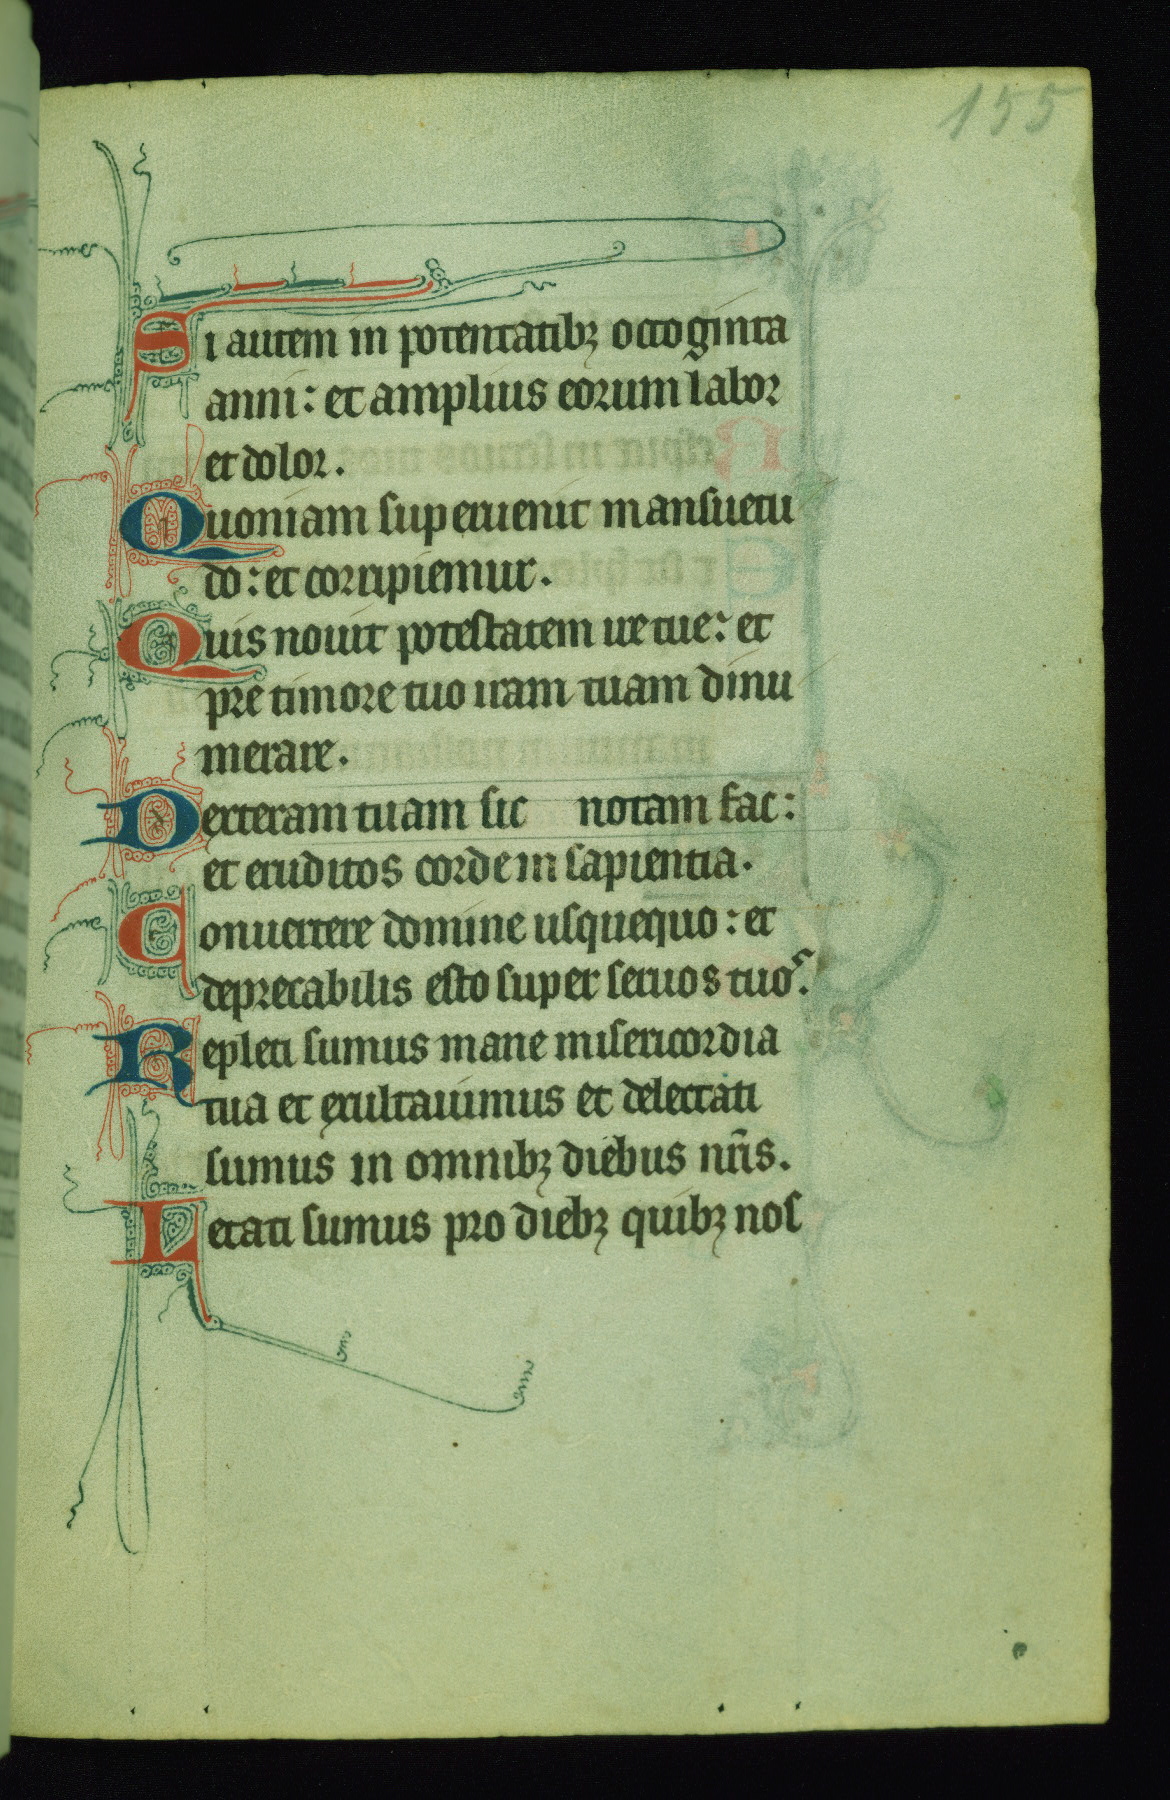 155
Si autem in potentatibꝫ octoginta
anni: et amplius eorum labor
et dolor.
Quoniam superuenit mansuetu
do: et corripiemur.
Quis nouit potestatem ire tue: et
pre timore tuo iram tuam dinu
merare.
Dexteram tuam sic notam fac:
et eruditos corde in sapientia.
Conuertere domine usquequo: et
deprecabilis esto super seruos tuos.
Repleti sumus mane misericordia
tua et exultauimus et delectati
sumus in omnibꝫ diebus nr̄is.
Letati sumus pro diebꝫ quibꝫ nos